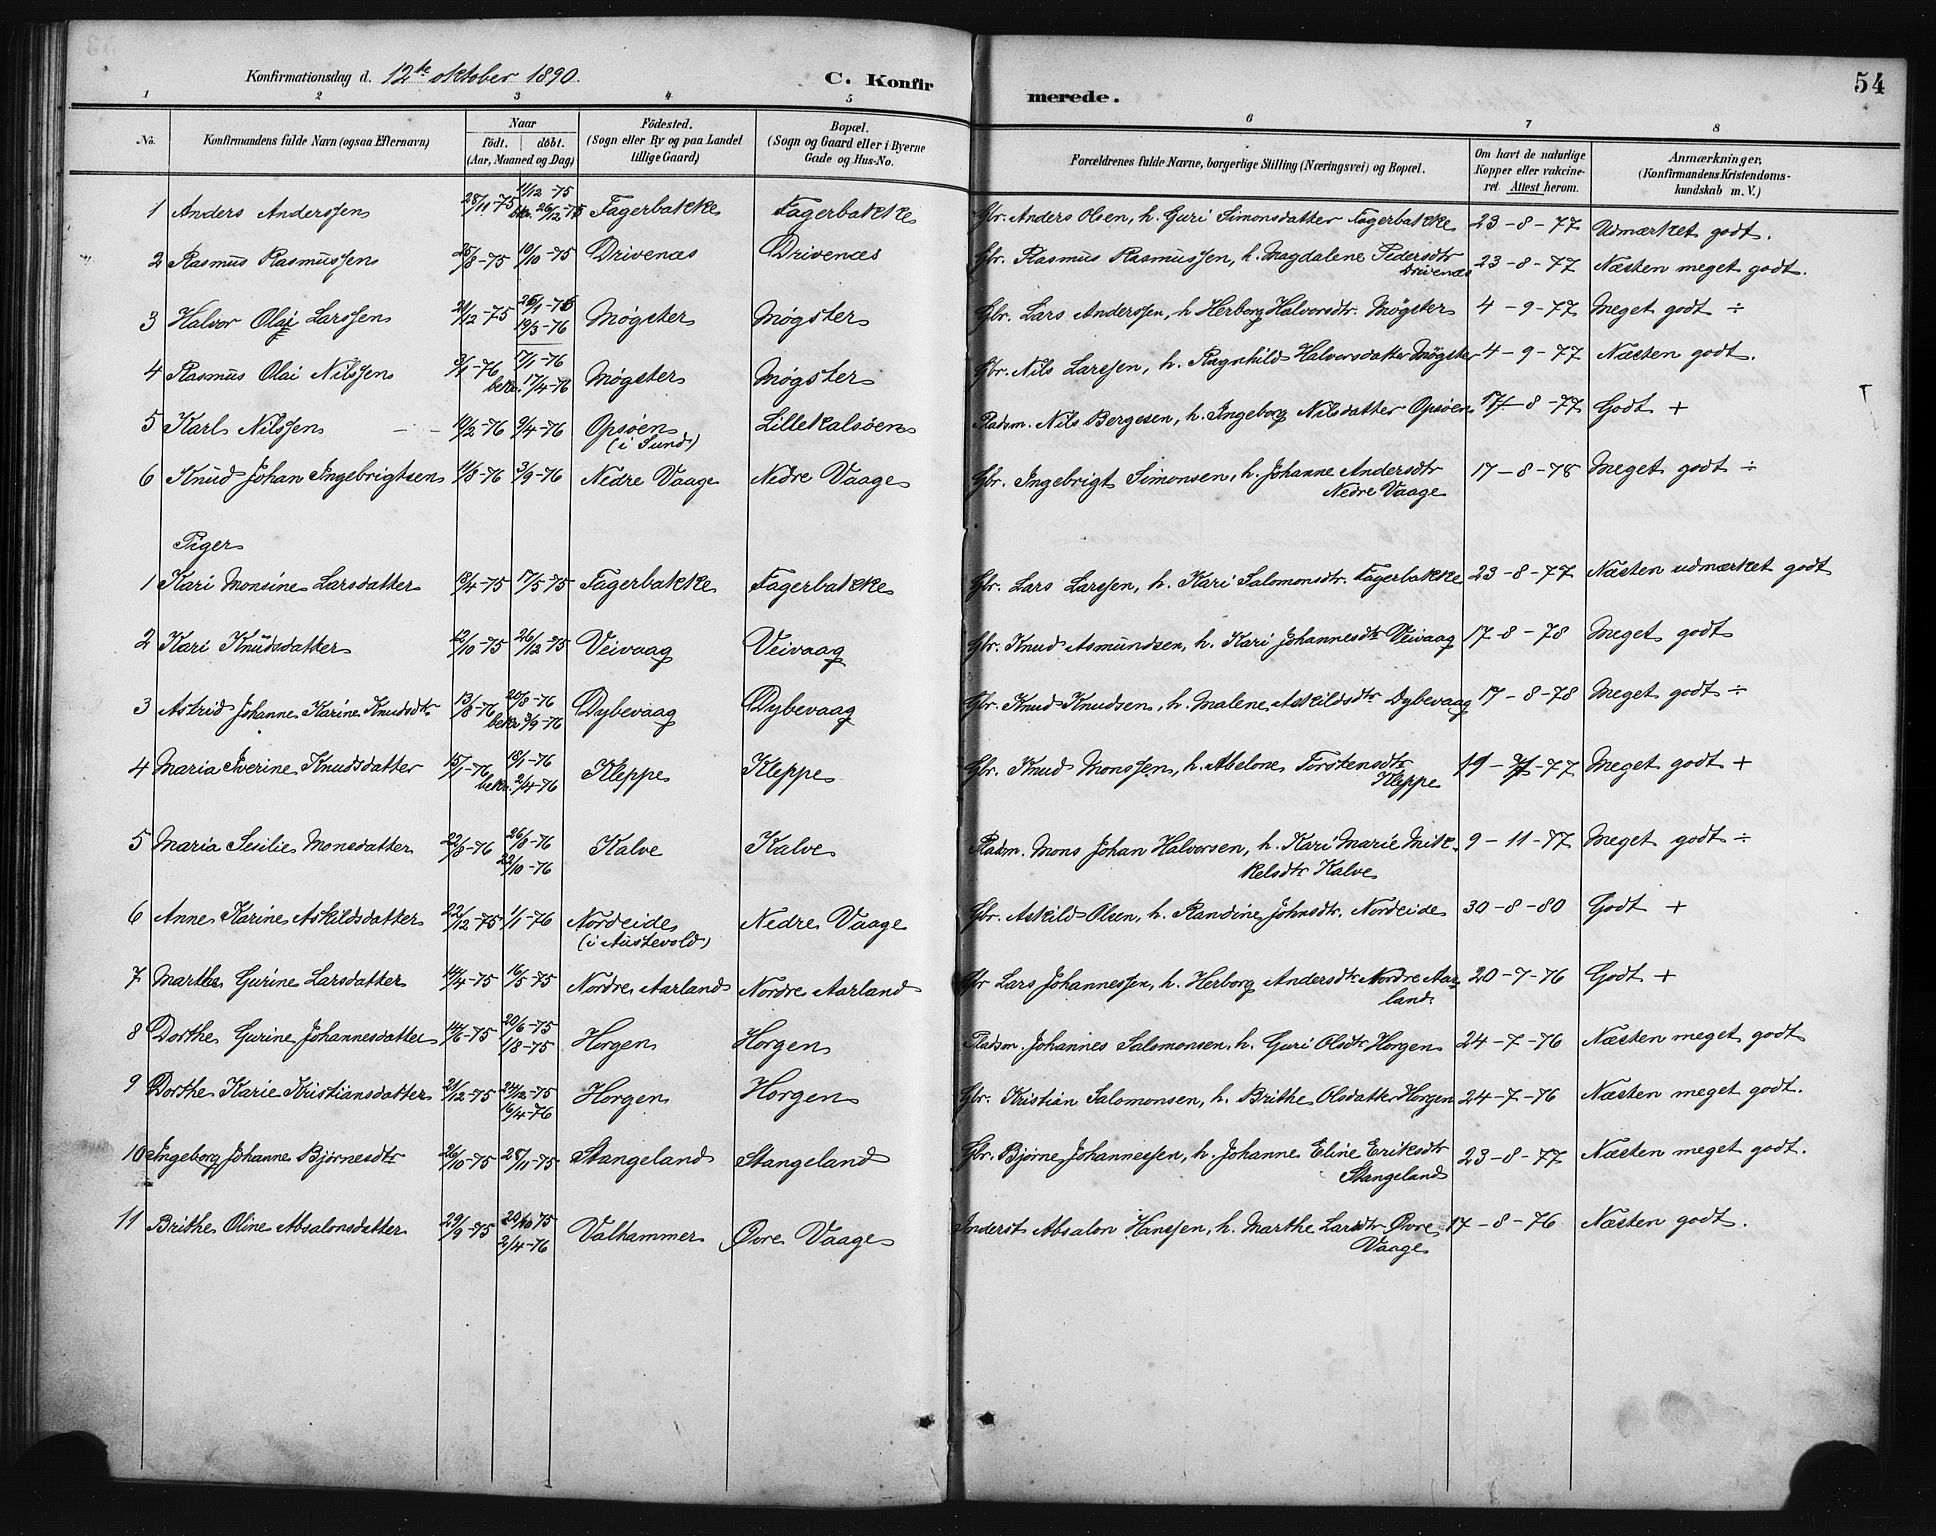 Konfirmationsdag d. 12te oktober 1890.
C. Konfirmerede.
54
1 2 3 4 5 6 7 8
No.
Konfirmandens fulde Navn (ogsaa Efternavn)
Naar
födt. | döbt.
(Aar, Maaned og Dag)
Födested.
(Sogn eller By og paa Landet
tillige Gaard)
Bopæl.
(Sogn og Gaard eller i Byerne
Gade og Hus-No.
Forældrenes fulde Navne, borgerlige Stilling (Næringsvei) og Bopæl.
Om havt de naturlige
Kopper eller vakcine-
ret Attest herom.
Anmærkninger.
(Konfirmandens Kristendoms-
kundskab m. V.)
1 Anders Anderssen 28/11-75 11/12-75 bekr. 26/12-75 Fagerbakke Fagerbakke Gbr. Anders Olsen, h. Guri Simonsdatter Fagerbakke 23-8-77 Udmærket godt.
2 Rasmus Rasmussen 25/8-75 10/10-75 Drivenæs Drivenæs Gbr. Rasmus Rasmussen, h. Magdalene Pedersdtr Drivenæs 23-8-77 Næsten meget godt.
3 Halvor Olai Larssen 21/12-75 19/3-76 Møgster Møgster Gbr. Lars Anderssen, h Herborg Halvorsdtr. Møgster 4-9-77 Meget godt ÷
4 Rasmus Olai Nilssen 3/1-76 17/1-76 bekr. 17/4-76 Møgster Møgster Gbr. Nils Larssen, h. Ragnhild Halvorsdatter Møgster 4-9-77 Næsten godt.
5 Karl Nilssen 10/2-76 9/4-76 Opsøen (i Sund) Lillekalsøen Pladsm. Nils Bergesen, h. Ingeborg Nilsdatter Opsøen 17-8-77 Godt +
6 Knud Johan Ingebrigtsen 11/8-76 3/9-76 Nedre Vaage Nedre Vaage Gbr. Ingebrigt Simonsen, h. Johanne Andersdtr Nedre Vaage 17-8-78 Meget godt ÷
Piger
1 Kari Monsine Larsdatter 18/4-75 17/5-75 Fagerbakke Fagerbakke Gbr. Lars Larssen, h. Kari Salomonsdtr. Fagerbakke 23-8-77 Næsten udmærket godt
2 Kari Knudsdatter 12/10-75 26/12-75 Veivaag Veivaag Gbr. Knud Asmundsen, h. Kari Johannesdtr Veivaag 17-8-78 Meget godt
3 Astrid Johanne Karine Knudsdtr 13/8-76 20/8-76 bekr 3/9-76 Dybevaag Dybevaag Gbr. Knud Knudsen, h. Malene Askildsdtr Dybevaag 17-8-78 Meget godt ÷
4 Maria Iverine Knudsdatter 15/1-76 18/1-76 bekr. 2/4-76 Kleppe Kleppe Gbr. Knud Monssen, h. Abelone Torstensdtr Kleppe Meget godt +
5 Maria Sesilie Monsdatter 22/8-76 26/8-76 22/10-76 Kalve Kalve Pladsm. Mons Johan Halvorsen, h. Kari Marie Mik- kelsdtr Kalve 9-11-77 Meget godt ÷
6 Anne Karine Askildsdatter 22/12-75 1/1-76 Nordeide (i Austevold) Nedre Vaage Gbr. Askild Olsen, h. Randine Johnsdtr. Nordeide 30-8-80 Godt +
7 Marthe Gurine Larsdatter 14/4-75 16/5-75 Nordre Aarland Nordre Aarland Gbr Lars Johannessen, h. Herborg Andersdtr Nordre Aar- land. 20-7-76 Godt +
8 Dorthe Gurine Johannesdatter 14/6-75 20/6-75 1/8-75 Horgen Horgen Pladsm. Johannes Salomonsen, h. Guri Olsdtr Horgen 24-7-76 Næsten meget godt
9 Dorthe Karie Kristiansdatter 21/12-75 24/12-75 16/4-76 Horgen Horgen Gbr. Kristian Salomonsen, h. Brithe Olsdatter Horgen 24-7-76 Næsten meget godt.
10 Ingeborg Johanne Bjørnesdtr 26/10-75 28/11-75 Stangeland Stangeland Gbr. Bjørne Johannessen, h. Johanne Eline Eriksdtr Stangeland 23-8-77 Næsten meget godt.
11 Brithe Oline Absalonsdatter 29/9-75 20/10 75 2/4-76 Valhammer Øvre Vaage Inderst Absalon Hanssen, h. Marthe Larsdtr Øvre Vaage 17-8-76 Næsten godt.